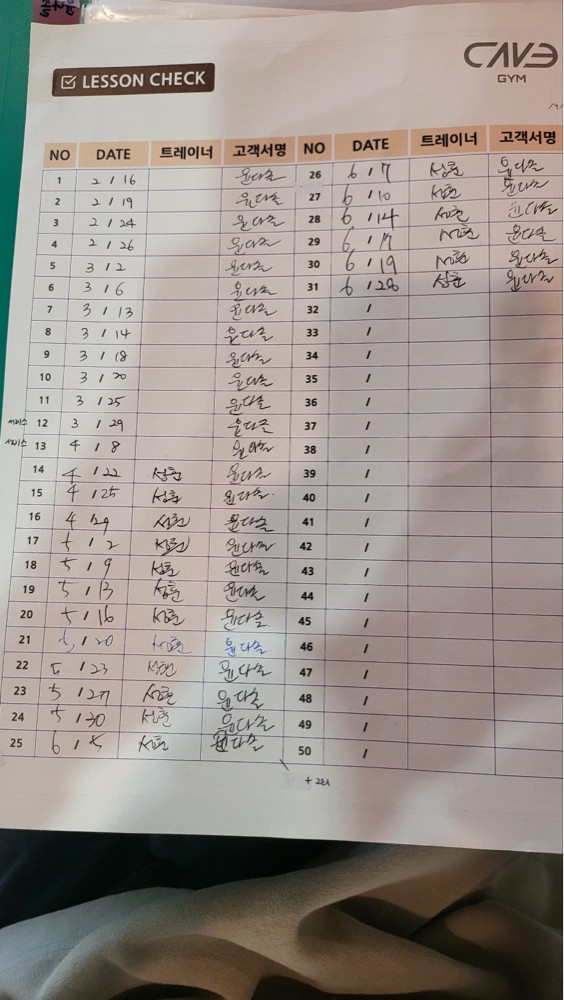 LESSON CHECK
CAVE
GYM
NO DATE 트레이너 고객서명 NO DATE 트레이너 고객서명
1 2 / 16 윤다솔 26 6 / 7 성훈 윤다솔
2 2 / 19 윤다솔 27 6 / 10 성훈 윤다솔
3 2 / 24 윤다솔 28 6 / 14 성훈 윤다솔
4 2 / 26 윤다솔 29 6 / 17 성훈 윤다솔
5 3 / 2 윤다솔 30 6 / 19 성훈 윤다솔
6 3 / 6 윤다솔 31 6 / 28 성훈 윤다솔
7 3 / 13 윤다솔 32 /
8 3 / 14 윤다솔 33 /
9 3 / 18 윤다솔 34 /
10 3 / 20 윤다솔 35 /
11 3 / 25 윤다솔 36 /
서비스 12 3 / 29 윤다솔 37 /
서비스 13 4 / 8 윤다솔 38 /
14 4 / 22 성훈 윤다솔 39 /
15 4 / 25 성훈 윤다솔 40 /
16 4 / 29 성훈 윤다솔 41 /
17 5 / 2 성훈 윤다솔 42 /
18 5 / 9 성훈 윤다솔 43 /
19 5 / 13 성훈 윤다솔 44 /
20 5 / 16 성훈 윤다솔 45 /
21 5 / 20 성훈 윤다솔 46 /
22 5 / 23 성훈 윤다솔 47 /
23 5 / 27 성훈 윤다솔 48 /
24 5 / 30 성훈 윤다솔 49 /
25 6 / 5 성훈 윤다솔 50 /